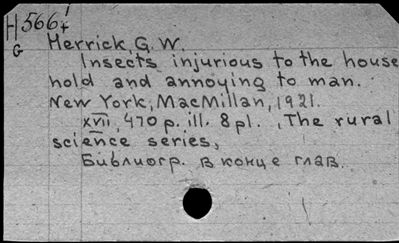 H 566 !
G 4
Herrick G. W.
Insects injurious to the house
hold and annoying to man.
New York, MacMillan, 1921.
XVII, 470 p. ill. 8 pl. , The rural
science series,
Библиогр. в конце глав.